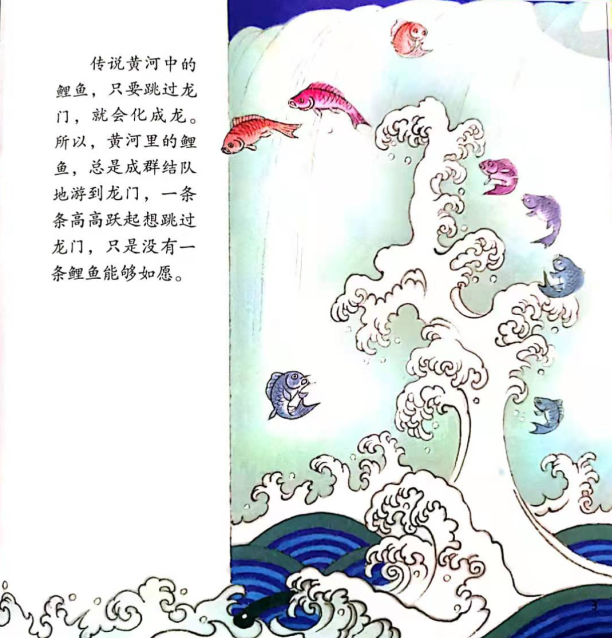 传说黄河中的
鲤鱼，只要跳过龙
门，就会化成龙。
所以，黄河里的鲤
鱼，总是成群结队
地游到龙门，一条
条高高跃起想跳过
龙门，只是没有一
条鲤鱼能够如愿。
3